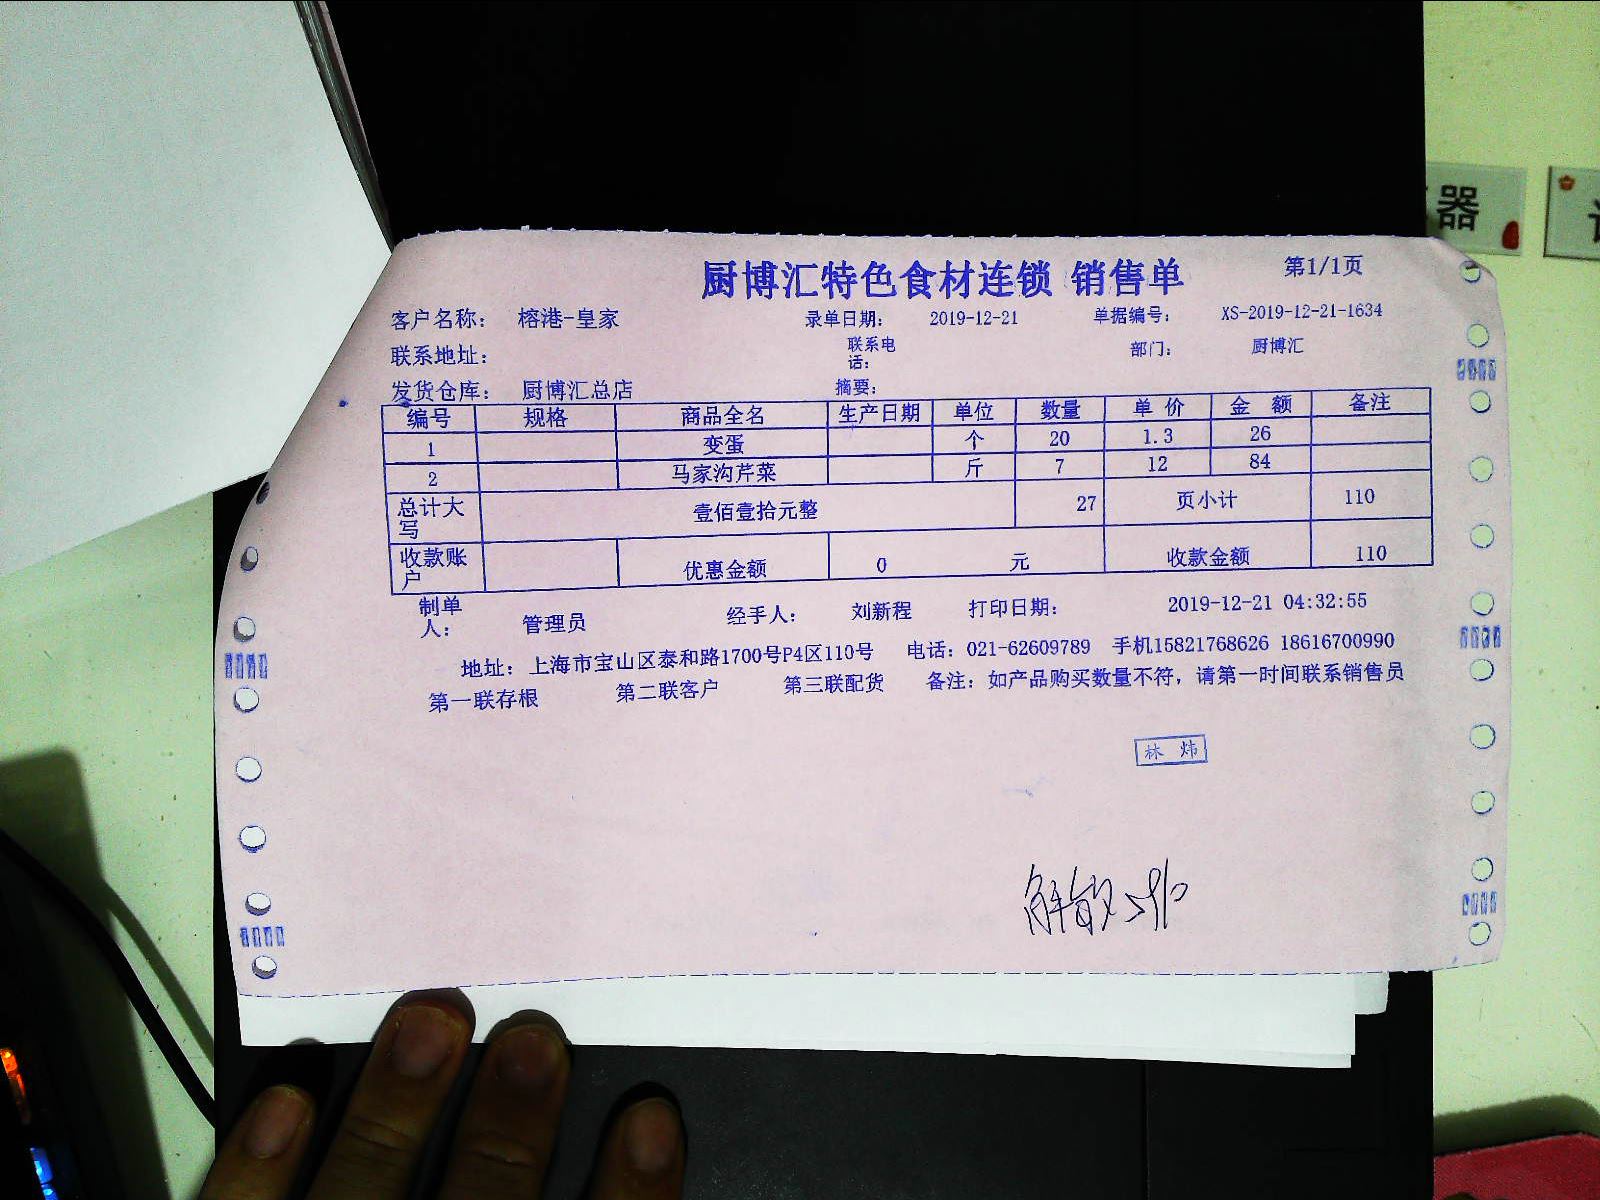 器
厨博汇特色食材连锁 销售单 第1/1页
客户名称： 榕港-皇家 录单日期： 2019-12-21 单据编号： XS-2019-12-21-1634
联系地址： 联系电话： 部门： 厨博汇
发货仓库： 厨博汇总店 摘要：
编号 规格 商品全名 生产日期 单位 数量 单 价 金 额 备注
1 变蛋 个 20 1.3 26
2 马家沟芹菜 斤 7 12 84
总计大写 壹佰壹拾元整 27 页小计 110
收款账户 优惠金额 0 元 收款金额 110
制单人： 管理员 经手人： 刘新程 打印日期： 2019-12-21 04:32:55
地址：上海市宝山区泰和路1700号P4区110号 电话：021-62609789 手机15821768626 18616700990
第一联存根 第二联客户 第三联配货 备注：如产品购买数量不符，请第一时间联系销售员
林 炜